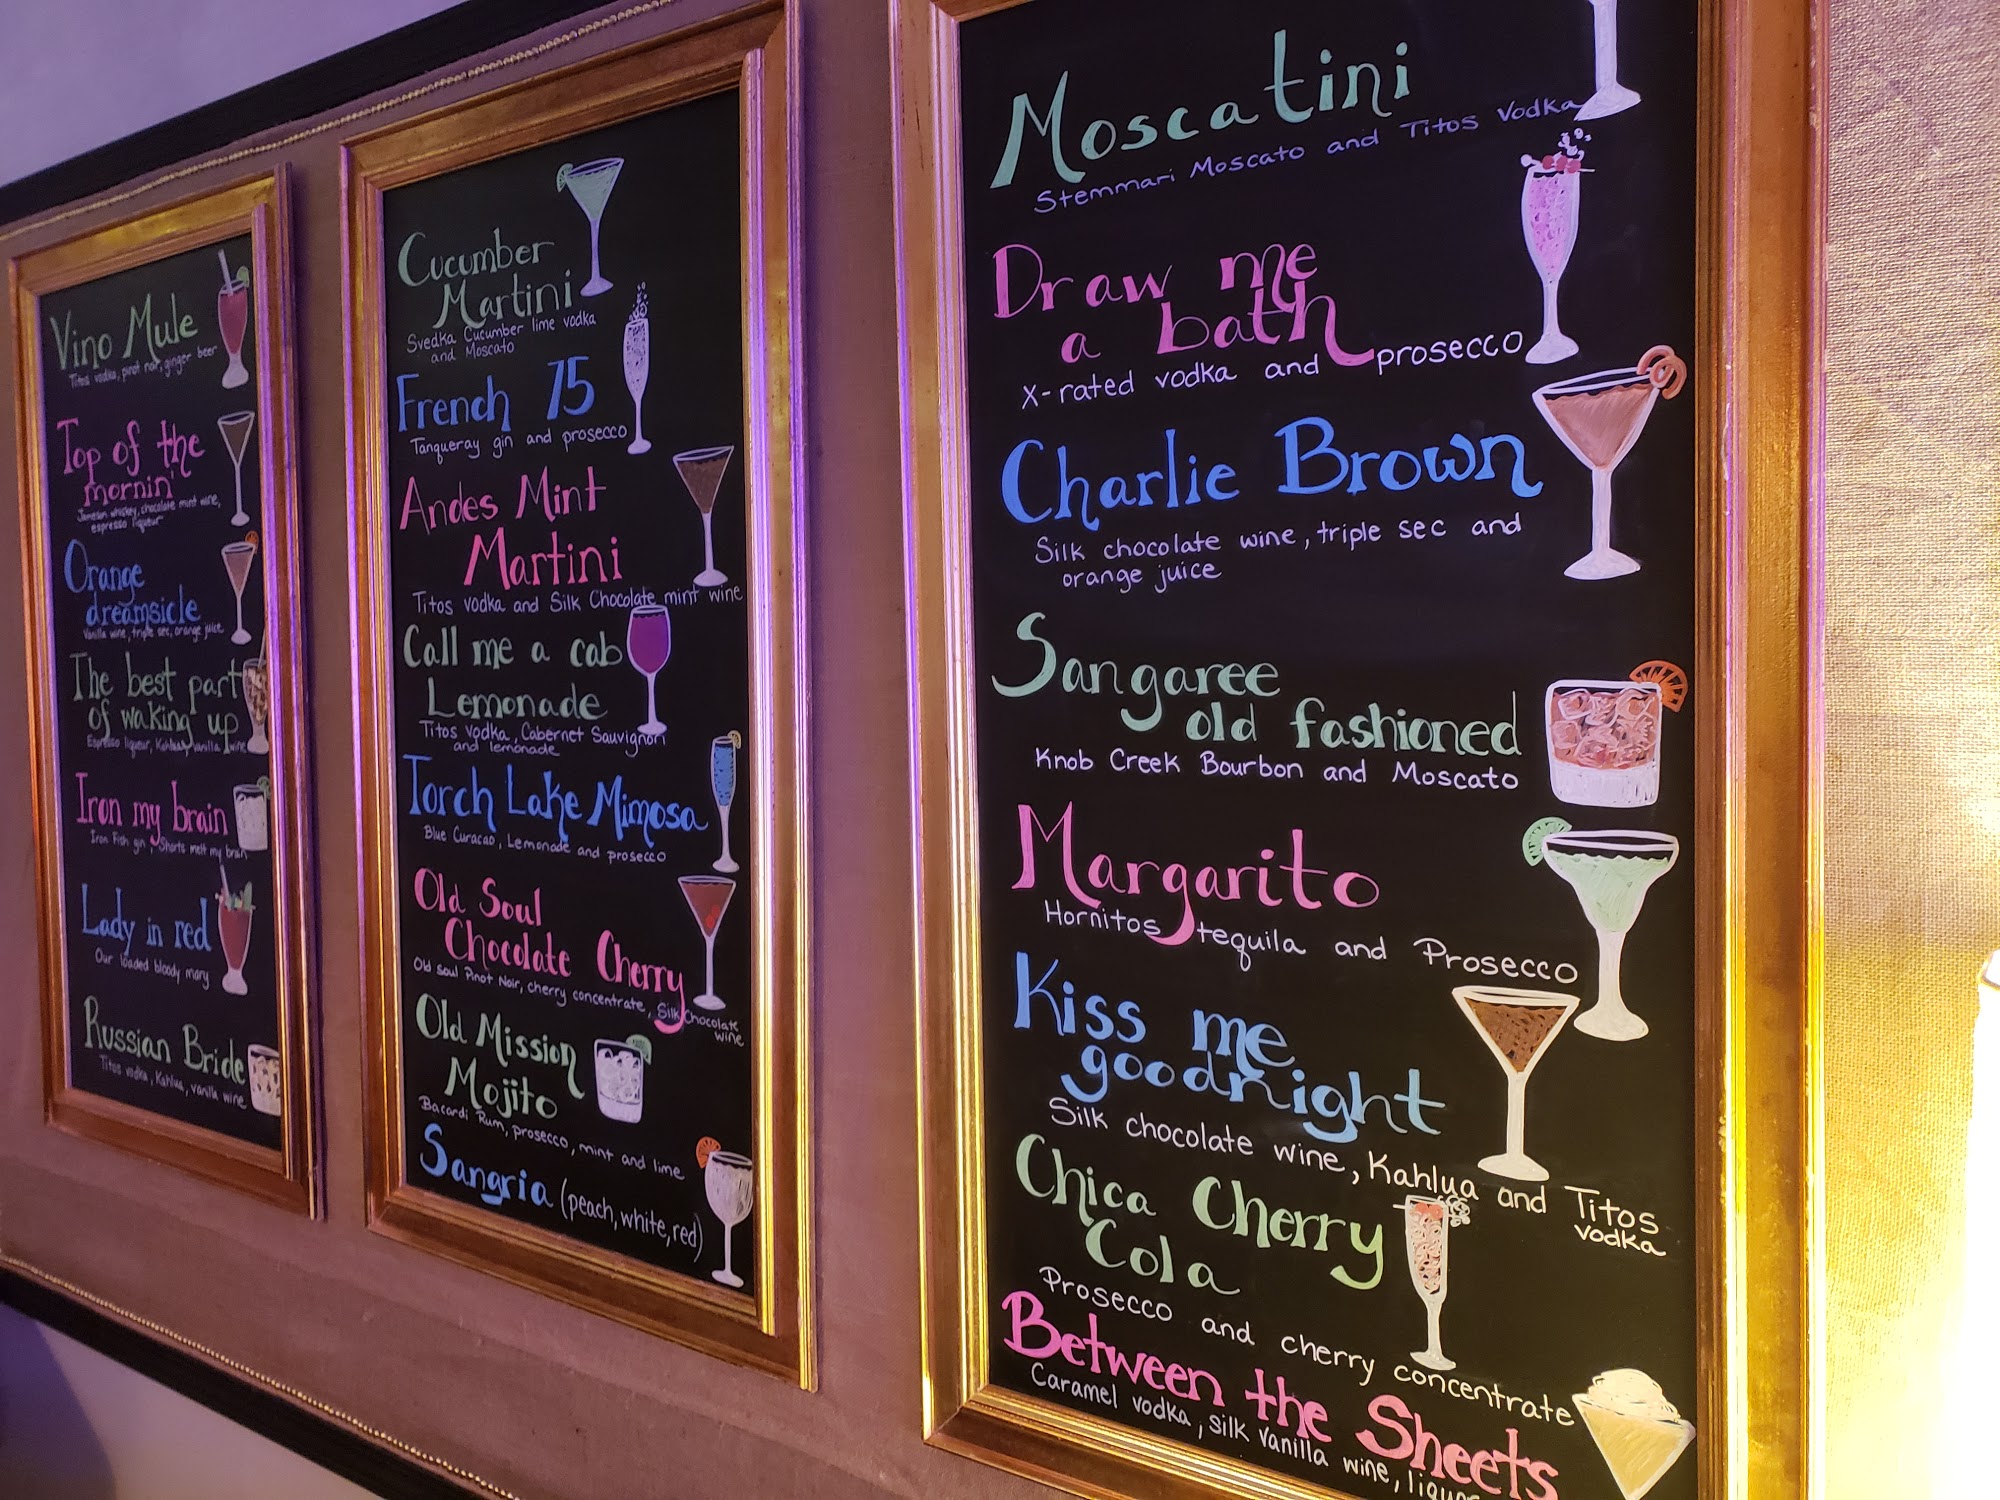 Vino Mule
Titos vodka, pinot noir, ginger beer
Top of the
mornin'
Jameson whiskey, chocolate mint wine,
espresso liqueur
Orange
dreamsicle
Vanilla wine, triple sec, orange juice
The best part
of waking up
Espresso liqueur, Kahlua, vanilla wine
Iron my brain
Iron Fish gin, Shorts melt my brain
Lady in red
Our loaded bloody mary
Russian Bride
Titos vodka, Kahlua, vanilla wine
Cucumber
Martini
Svedka Cucumber lime vodka
and Moscato
French 75
Tanqueray gin and prosecco
Andes Mint
Martini
Titos vodka and Silk Chocolate mint wine
Call me a cab
Lemonade
Titos vodka, Cabernet Sauvignon
and lemonade
Torch Lake Mimosa
Blue Curacao, Lemonade and prosecco
Old Soul
Chocolate Cherry
Old Soul Pinot Noir, cherry concentrate, Silk Chocolate
wine
Old Mission
Mojito
Bacardi Rum, prosecco, mint and lime
Sangria (peach, white, red)
Moscatini
Stemmari Moscato and Titos Vodka
Draw me
a bath
X-rated vodka and prosecco
Charlie Brown
Silk chocolate wine, triple sec and
orange juice
Sangaree
old fashioned
Knob Creek Bourbon and Moscato
Margarito
Hornitos tequila and Prosecco
Kiss me
goodnight
Silk chocolate wine, Kahlua and Titos
vodka
Chica Cherry
Cola
Prosecco and cherry concentrate
Between the Sheets
Caramel vodka, silk vanilla wine,